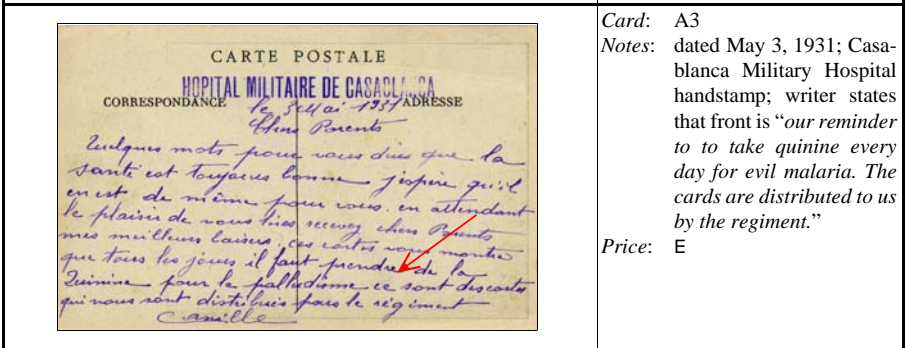 CARTE POSTALE
HOPITAL MILITAIRE DE CASABLANCA
CORRESPONDANCE ADRESSE
le 3 Mai 1931
Chers Parents
Quelques mots pour vous dire que la
santé est toujours bonne j'espère qu'il
en est de même pour vous. en attendant
le plaisir de vous lire recevez chers Parents
mes meilleurs baisers, ces cartes vous montre
que tous les jours il faut prendre de la
Quinine pour le palludisme ce sont des cartes
qui nous sont distribuis pars le régiment
Camille
Card: A3
Notes: dated May 3, 1931; Casa-
blanca Military Hospital
handstamp; writer states
that front is “our reminder
to to take quinine every
day for evil malaria. The
cards are distributed to us
by the regiment.”
Price: E